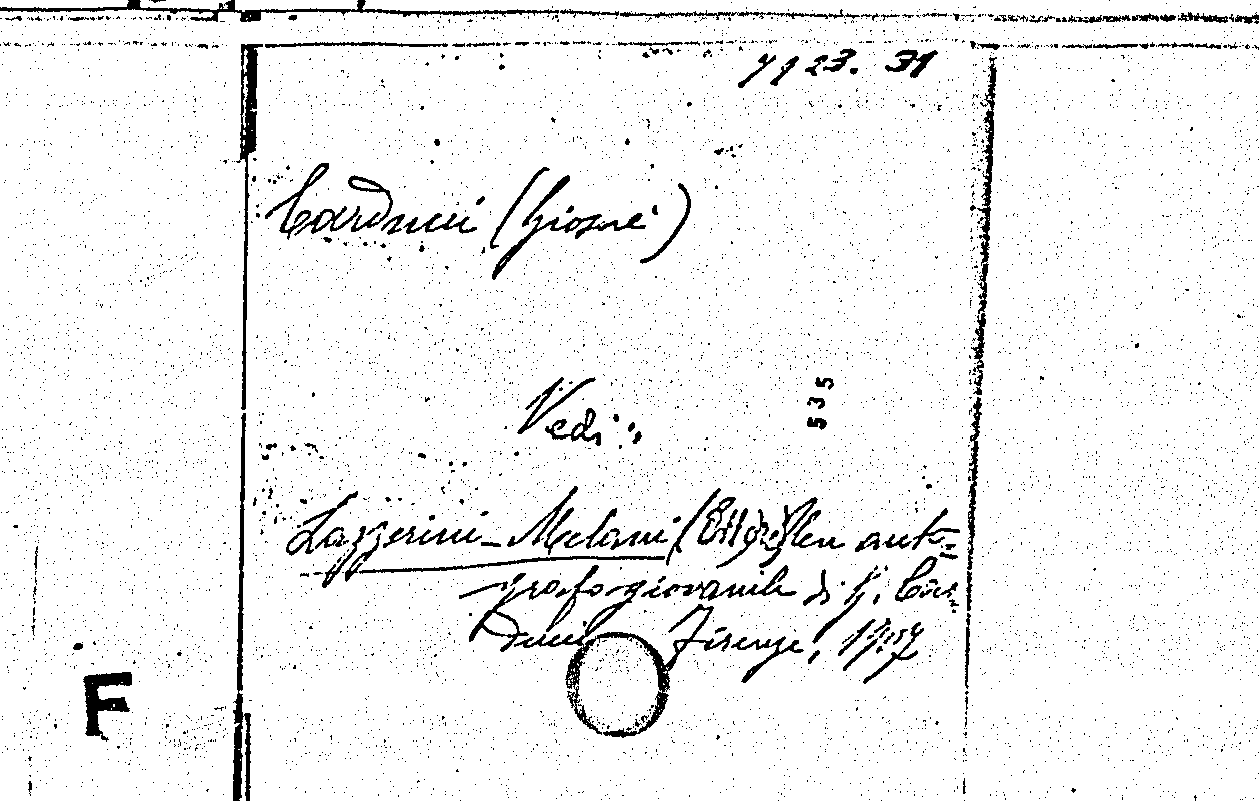 7923. 31
Carducci (Giosuè)
Vedi:
535
Lazzerini-Melani (Ettore) Un auto=
grafo giovanile di G. Car=
ducci Firenze, 1907
F